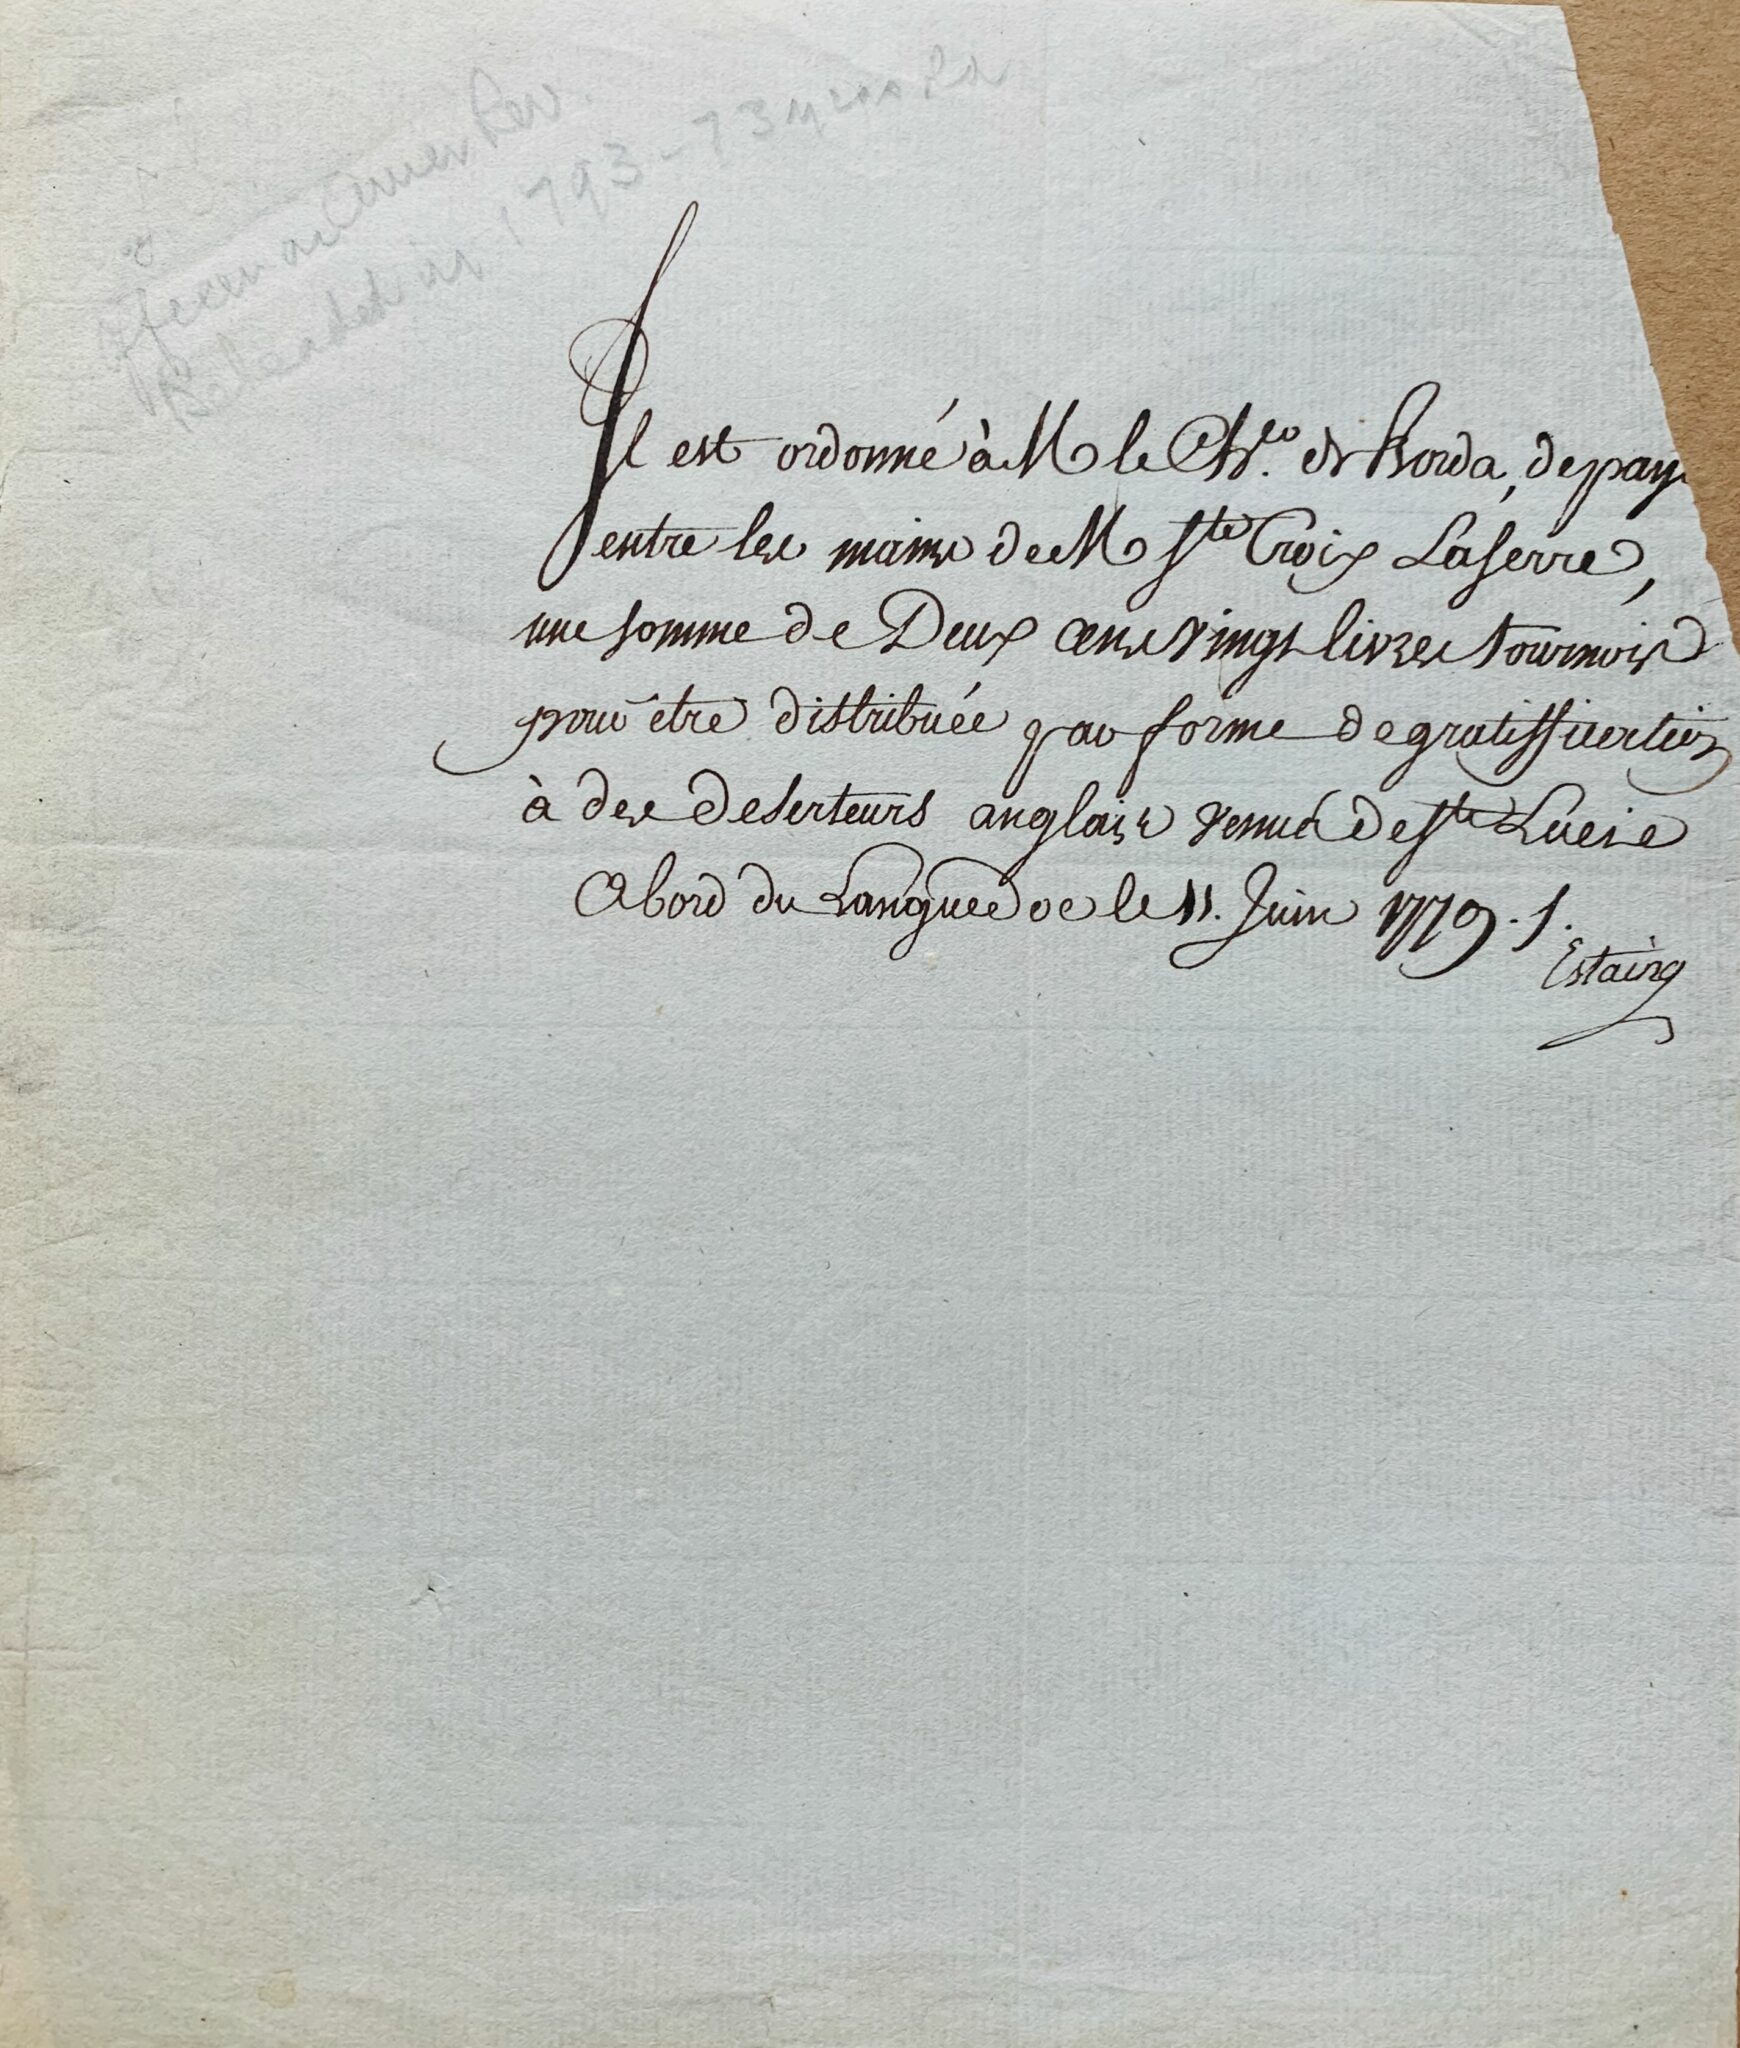 Amer Rev.
Beheaded in 1793 - 73 years old
Il est ordonné à M le Ch.er de Borda, de paye
entre les mains de M Ste Croix Laserre,
une somme de Deux cens vingt livres tournois
pour être distribuée par forme de gratiffication
à des deserteurs anglais venus de Ste Lucie
A bord du Languedoc le 11. Juin 1779. /.
Estaing